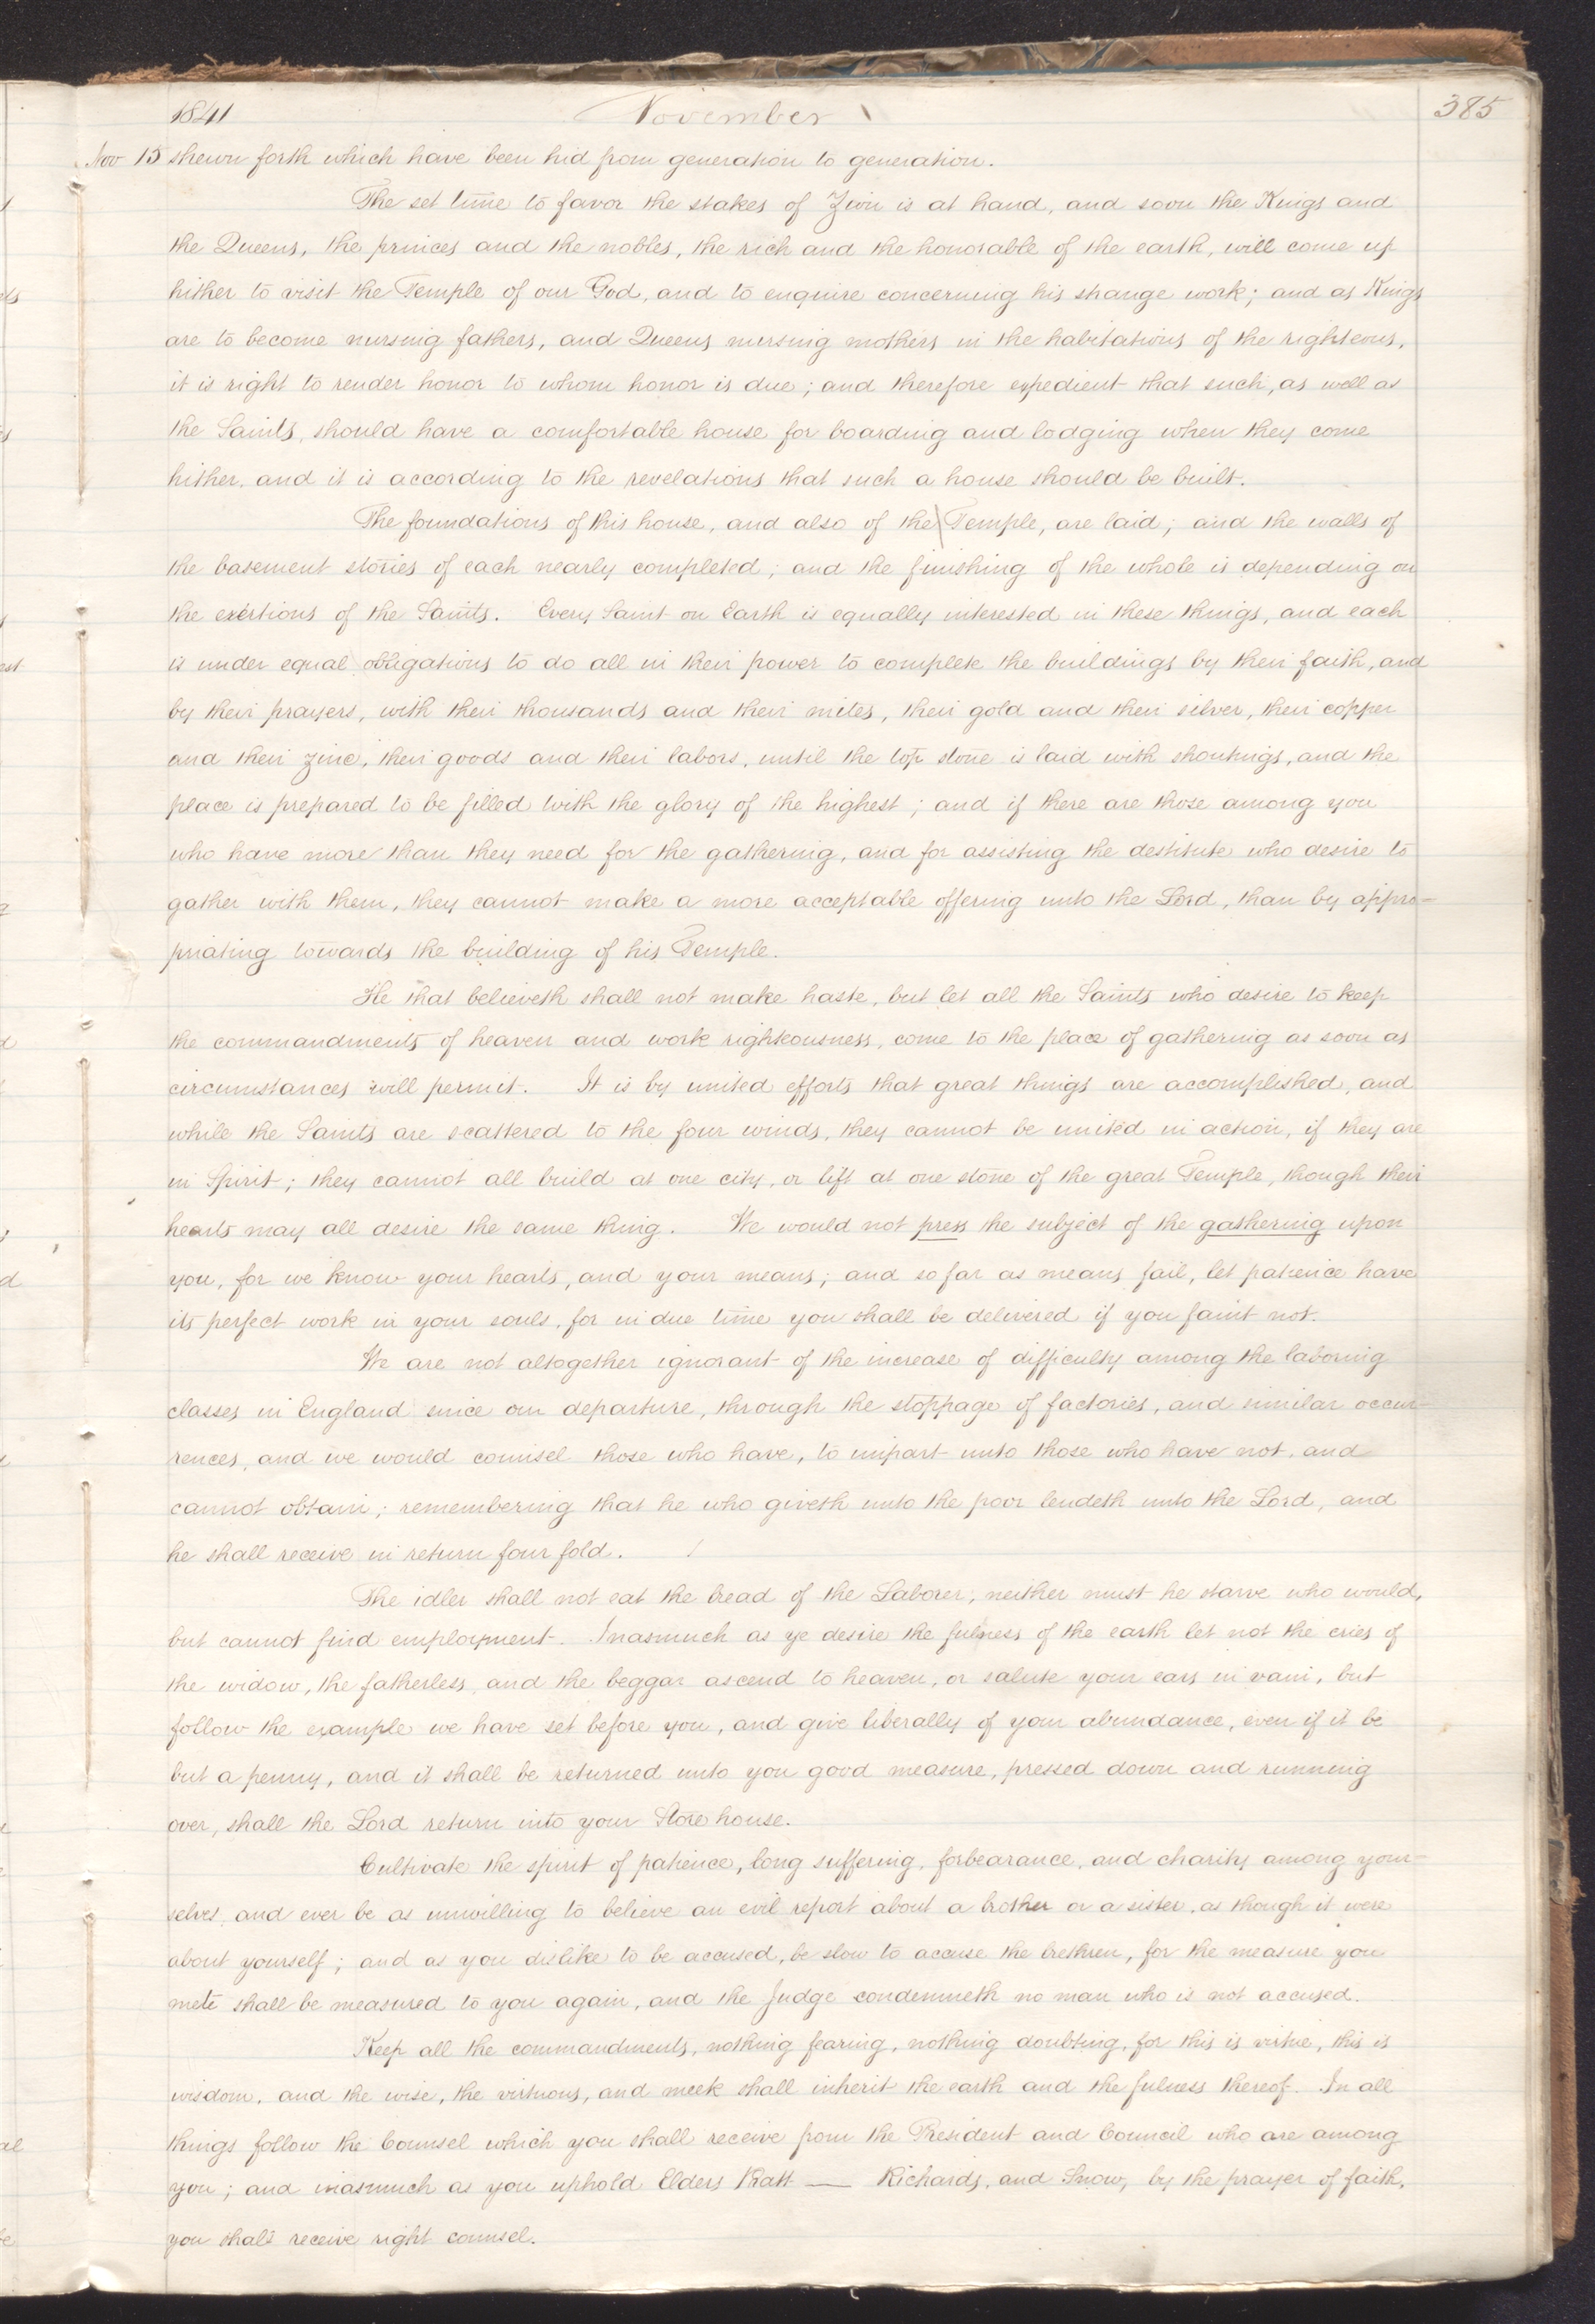 1841 November 385
Nov 15 shewn forth which have been hid from generation to generation.
The set time to favor the stakes of Zion is at hand, and soon the Kings and
the Queens, the princes and the nobles, the rich and the honorable of the earth, will come up
hither to visit the Temple of our God, and to enquire concerning his strange work; and as Kings
are to become nursing fathers, and Queens nursing mothers in the habitations of the righteous,
it is right to render honor to whom honor is due; and therefore expedient that such, as well as
the Saints, should have a comfortable house for boarding and lodging when they come
hither, and it is according to the revelations that such a house should be built.
The foundations of this house, and also of the Temple, are laid; and the walls of
the basement stories of each nearly completed; and the finishing of the whole is depending on
the exertions of the Saints. Every Saint on Earth is equally interested in these things, and each
is under equal obligations to do all in their power to complete the buildings by their faith, and
by their prayers, with their thousands and their mites, their gold and their silver, their copper
and their zinc, their goods and their labors, until the top stone is laid with shoutings, and the
place is prepared to be filled with the glory of the highest; and if there are those among you
who have more than they need for the gathering, and for assisting the destitute who desire to
gather with them, they cannot make a more acceptable offering unto the Lord, than by appro-
priating towards the building of his Temple.
He that believeth shall not make haste, but let all the Saints who desire to keep
the commandments of heaven and work righteousness, come to the place of gathering as soon as
circumstances will permit. It is by united efforts that great things are accomplished, and
while the Saints are scattered to the four winds, they cannot be united in action, if they are
in Spirit; they cannot all build at one city, or lift at one stone of the great Temple, though their
hearts may all desire the same thing. We would not press he subject of the gathering upon
you, for we know your hearts, and your means; and so far as means fail, let patience have
its perfect work in your souls, for in due time you shall be delivered if you faint not.
We are not altogether ignorant of the increase of difficulty among the laboring
classes in England since our departure, through the stoppage of factories, and similar occur-
rences, and we would counsel those who have, to impart unto those who have not, and
cannot obtain; remembering that he who giveth unto the poor lendeth unto the Lord, and
he shall receive in return four fold.
The idler shall not eat the bread of the Laborer; neither must he starve who would,
but cannot find employment. Inasmuch as ye desire the fulness of the earth let not the cries of
the widow, the fatherless, and the beggar ascend to heaven, or salute your ears in vain, but
follow the example we have set before you, and give liberally of your abundance, even if it be
but a penny, and it shall be returned unto you good measure, pressed down and running
over, shall the Lord return into your Store house.
Cultivate the spirit of patience, long suffering, forbearance, and charity among your-
selves, and ever be as unwilling to believe an evil report about a brother or a sister, as though it were
about yourself; and as you dislike to be accused, be slow to accuse the brethren, for the measure you
mete shall be measured to you again, and the Judge condemneth no man who is not accused.
Keep all the commandments, nothing fearing, nothing doubting, for this is virtue, this is
wisdom, and the wise, the virtuous, and meek shall inherit the earth and the fulness thereof. In all
things follow the Counsel which you shall receive from the President and Council who are among
you; and inasmuch as you uphold Elders Pratt — Richards, and Snow, by the prayer of faith,
you shall receive right counsel.